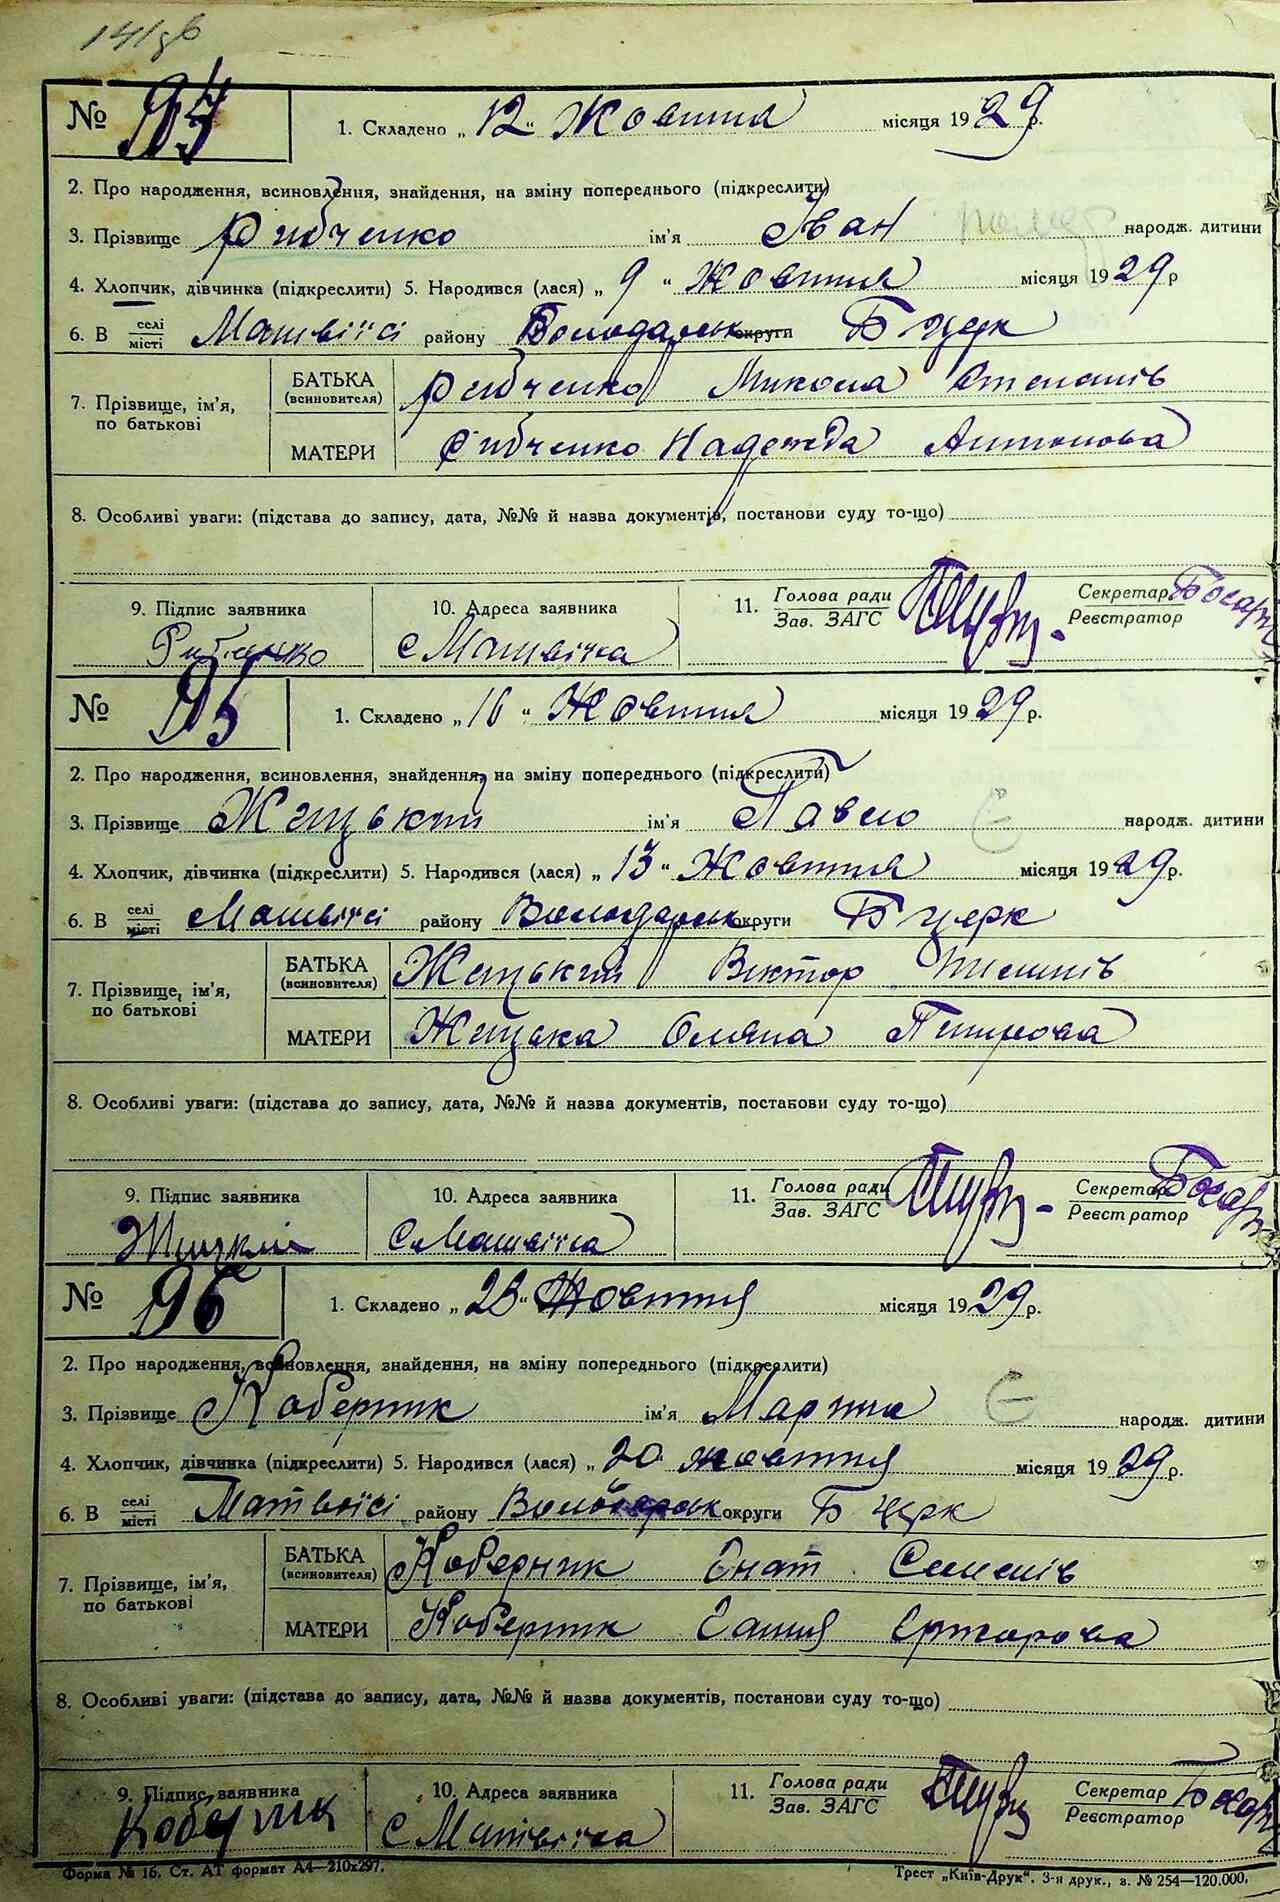 141зв
№ 94
1. Складено „ 12 “ Жовтня місяця 1929 р.
2. Про народження, всиновлення, знайдення, на зміну попереднього (підкреслити)
3. Прізвище Рибченко ім'я Іван помер народж. дитини
4. Хлопчик, дівчинка (підкреслити) 5. Народився (лася) „ 9 “ Жовтня місяця 1929 р
6. В селі місті Матвіїсі району Володарськ округи Б церк
7. Прізвище, ім'я, по батькові
БАТЬКА (всиновителя) Рибченко Микола Степанів
МАТЕРИ Рибченко Надежда Антонова
8. Особливі уваги: (підстава до запису, дата, №№ й назва документів, постанови суду то-що)
9. Підпис заявника 10. Адреса заявника 11. Голова ради Зав. ЗАГС Секретар Реєстратор
Рибченко с Матвіїха
№ 95
1. Складено „ 16 “ Жовтня місяця 1929 р.
2. Про народження, всиновлення, знайдення, на зміну попереднього (підкреслити)
3. Прізвище Жицький ім'я Павло Є народж. дитини
4. Хлопчик, дівчинка (підкреслити) 5. Народився (лася) „ 13 “ Жовтня місяця 1929 р.
6. В селі місті Матвіїсі району Володарськ округи Б церк
7. Прізвище, ім'я, по батькові
БАТЬКА (всиновителя) Жицький Віктор
МАТЕРИ Жицька Оляна Петрова
8. Особливі уваги: (підстава до запису, дата, №№ й назва документів, постанови суду то-що)
9. Підпис заявника 10. Адреса заявника 11. Голова ради Зав. ЗАГС Секретар Реєстратор
с Матвіїха
№ 96
1. Складено „ 23 “ Жовтня місяця 1929 р.
2. Про народження, всиновлення, знайдення, на зміну попереднього (підкреслити)
3. Прізвище Коберник ім'я Марія Є народж. дитини
4. Хлопчик, дівчинка (підкреслити) 5. Народився (лася) „ 20 жовтня місяця 1929 р.
6. В селі місті Матвіїсі району Володарськ округи Б церк
7. Прізвище, ім'я, по батькові
БАТЬКА (всиновителя) Коберник Гнат Семенів
МАТЕРИ Коберник Ганна
8. Особливі уваги: (підстава до запису, дата, №№ й назва документів, постанови суду то-що)
9. Підпис заявника 10. Адреса заявника 11. Голова ради Зав. ЗАГС Секретар Реєстратор
Коберник с Матвіїха
Форма № 16. Ст. АТ формат А4—210х297. Трест „Київ-Друк“. 3-я друк., з. № 254—120.000.